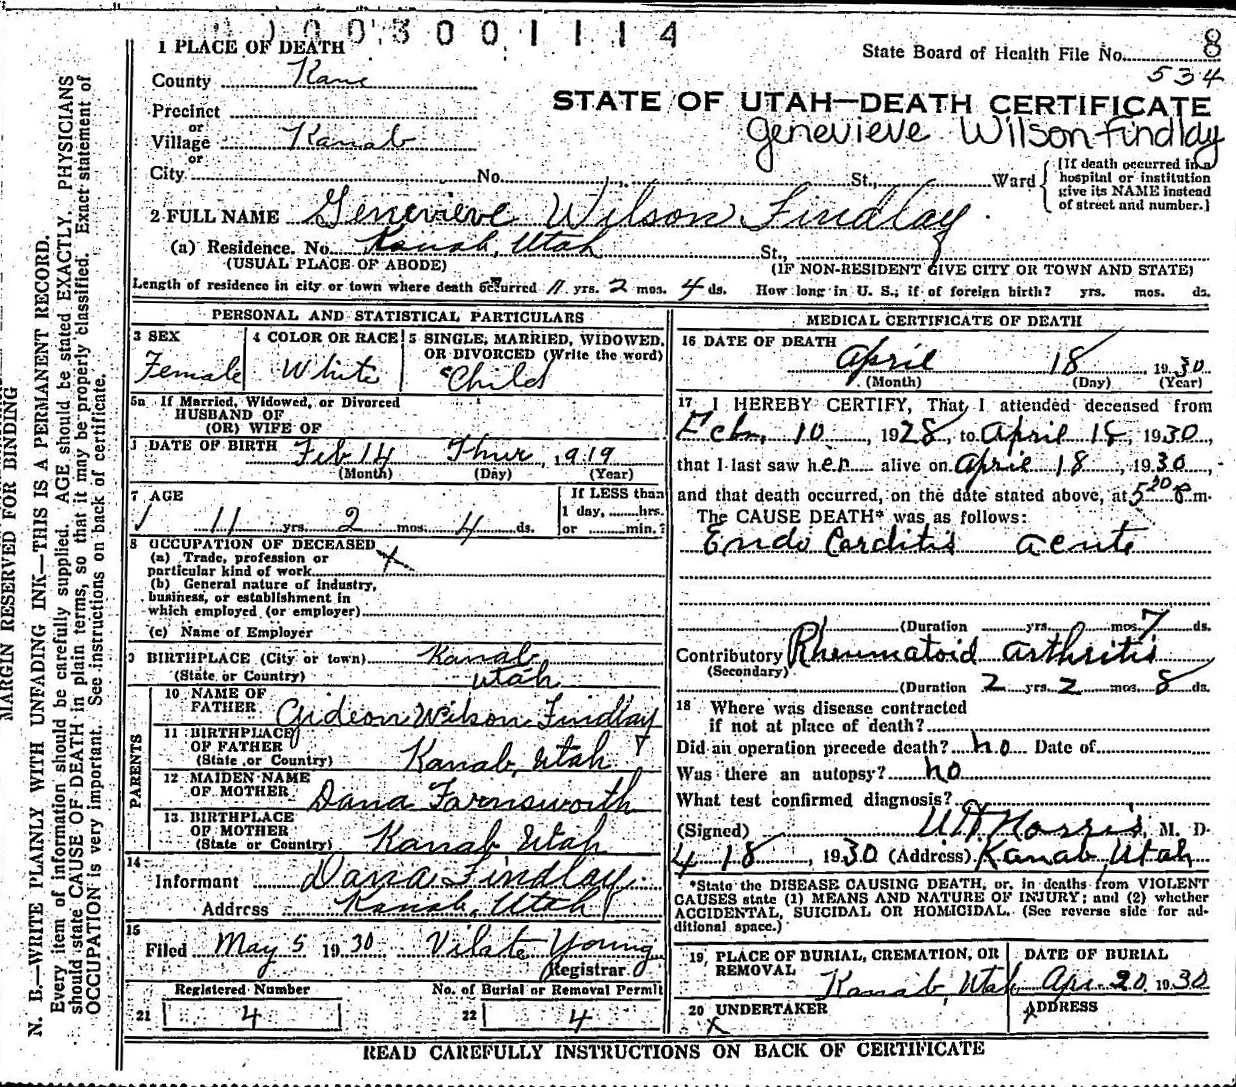 0030011114
1 PLACE OF DEATH
State Board of Health File No. 8
534
County Kane
STATE OF UTAH—DEATH CERTIFICATE
Precinct
Genevieve Wilson Findlay
or
Village Kanab
or
City No. St., Ward
[If death occurred in a hospital or institution give its NAME instead of street and number.]
2 FULL NAME Genevieve Wilson Findlay.
(a) Residence. No. Kanab, Utah St.,
(USUAL PLACE OF ABODE) (IF NON-RESIDENT GIVE CITY OR TOWN AND STATE)
Length of residence in city or town where death occurred 11 yrs. 2 mos. 4 ds. How long in U. S.; if of foreign birth? yrs. mos. ds.
PERSONAL AND STATISTICAL PARTICULARS
3 SEX
Female
4 COLOR OR RACE
White
5 SINGLE, MARRIED, WIDOWED,
OR DIVORCED (Write the word)
Child
5a If Married, Widowed, or Divorced
HUSBAND OF
(OR) WIFE OF
DATE OF BIRTH Feb 14 Thur, 1919
(Month) (Day) (Year)
7 AGE
11 yrs. 2 mos. 4 ds.
If LESS than
1 day, hrs.
or min.?
8 OCCUPATION OF DECEASED
(a) Trade, profession or
particular kind of work x
(b) General nature of industry,
business, or establishment in
which employed (or employer)
(c) Name of Employer
9 BIRTHPLACE (City or town) Kanab
(State or Country) Utah
PARENTS
10 NAME OF
FATHER Gideon Wilson Findlay
11 BIRTHPLACE
OF FATHER
(State or Country) Kanab, Utah
12 MAIDEN NAME
OF MOTHER Dana Farnsworth
13 BIRTHPLACE
OF MOTHER
(State or Country) Kanab Utah
14
Informant Dana Findlay.
Address Kanab, Utah
15
Filed May 5 1930 Vilate Young
Registrar
Registered Number No. of Burial or Removal Permit
21 4 22 4
MEDICAL CERTIFICATE OF DEATH
16 DATE OF DEATH
April 18 1930
(Month) (Day) (Year)
17 I HEREBY CERTIFY, That I attended deceased from
Feb, 10, 1928, to April 18, 1930,
that I last saw her alive on April 18, 1930,
and that death occurred, on the date stated above, at 5 30 P.m.
The CAUSE DEATH* was as follows:
Endo Carditis acute
(Duration yrs. mos. 7 ds.
Contributory Rheumatoid arthritis
(Secondary)
(Duration 2 yrs. 2 mos. 8 ds.
18 Where was disease contracted
if not at place of death?
Did an operation precede death? no Date of
Was there an autopsy? no
What test confirmed diagnosis?
(Signed) Norris, M. D.
4 18, 1930 (Address) Kanab Utah
*State the DISEASE CAUSING DEATH, or, in deaths from VIOLENT
CAUSES state (1) MEANS AND NATURE OF INJURY; and (2) whether
ACCIDENTAL, SUICIDAL OR HOMICIDAL. (See reverse side for ad-
ditional space.)
19 PLACE OF BURIAL, CREMATION, OR
REMOVAL Kanab, Utah
DATE OF BURIAL
Apr. 20, 1930
20 UNDERTAKER
x
ADDRESS
READ CAREFULLY INSTRUCTIONS ON BACK OF CERTIFICATE
MARGIN RESERVED FOR BINDING
N. B.—WRITE PLAINLY WITH UNFADING INK—THIS IS A PERMANENT RECORD.
Every item of information should be carefully supplied. AGE should be stated EXACTLY. PHYSICIANS
should state CAUSE OF DEATH in plain terms, so that it may be properly classified. Exact statement of
OCCUPATION is very important. See instructions on back of certificate.